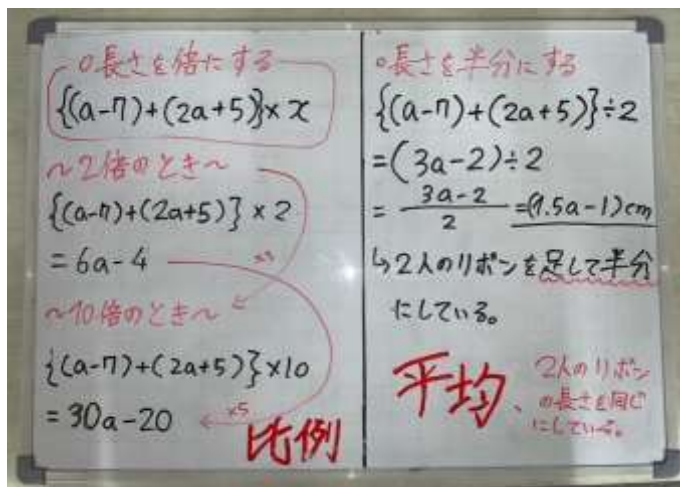 ○長さを倍にする
{(a-7)+(2a+5)}×x
~2倍のとき~
{(a-7)+(2a+5)}×2
=6a-4
~10倍のとき~
{(a-7)+(2a+5)}×10
=30a-20
×5
比例
○長さを半分にする
{(a-7)+(2a+5)}÷2
=(3a-2)÷2
=\frac{3a-2}{2}=(1.5a-1)cm
↳2人のリボンを足して半分
にしている。
平均、
2人のリボン
の長さを同じ
にしている。